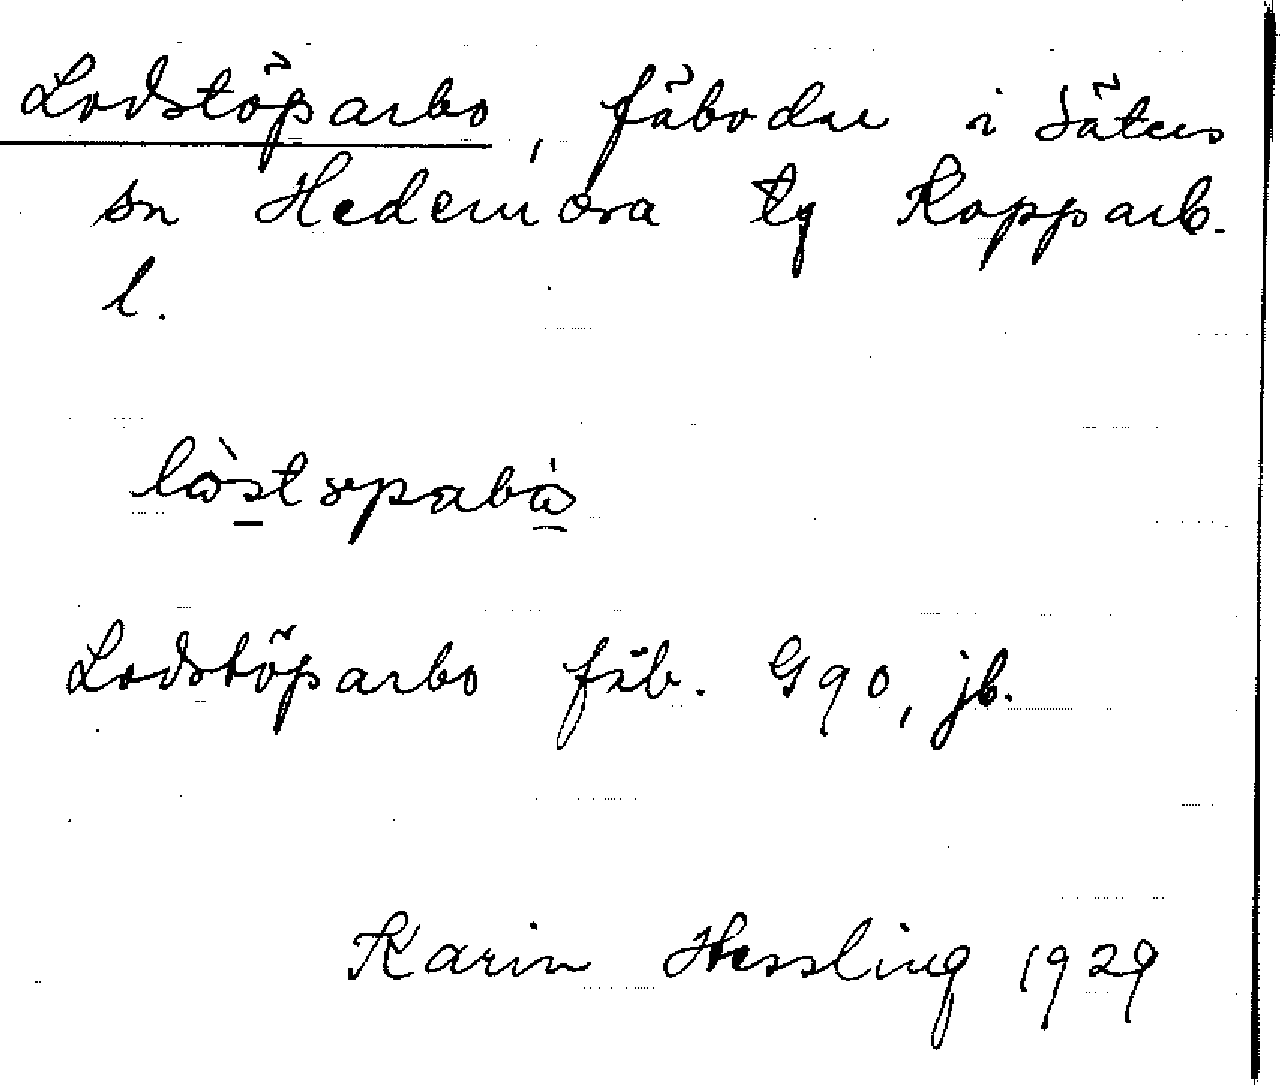 Lodstöparbo, fäbodar i Säters
sn Hedemora tg Kopparb.
l.
Lodstöparbo fäb. G90, jb.
Karin Hessling 1929